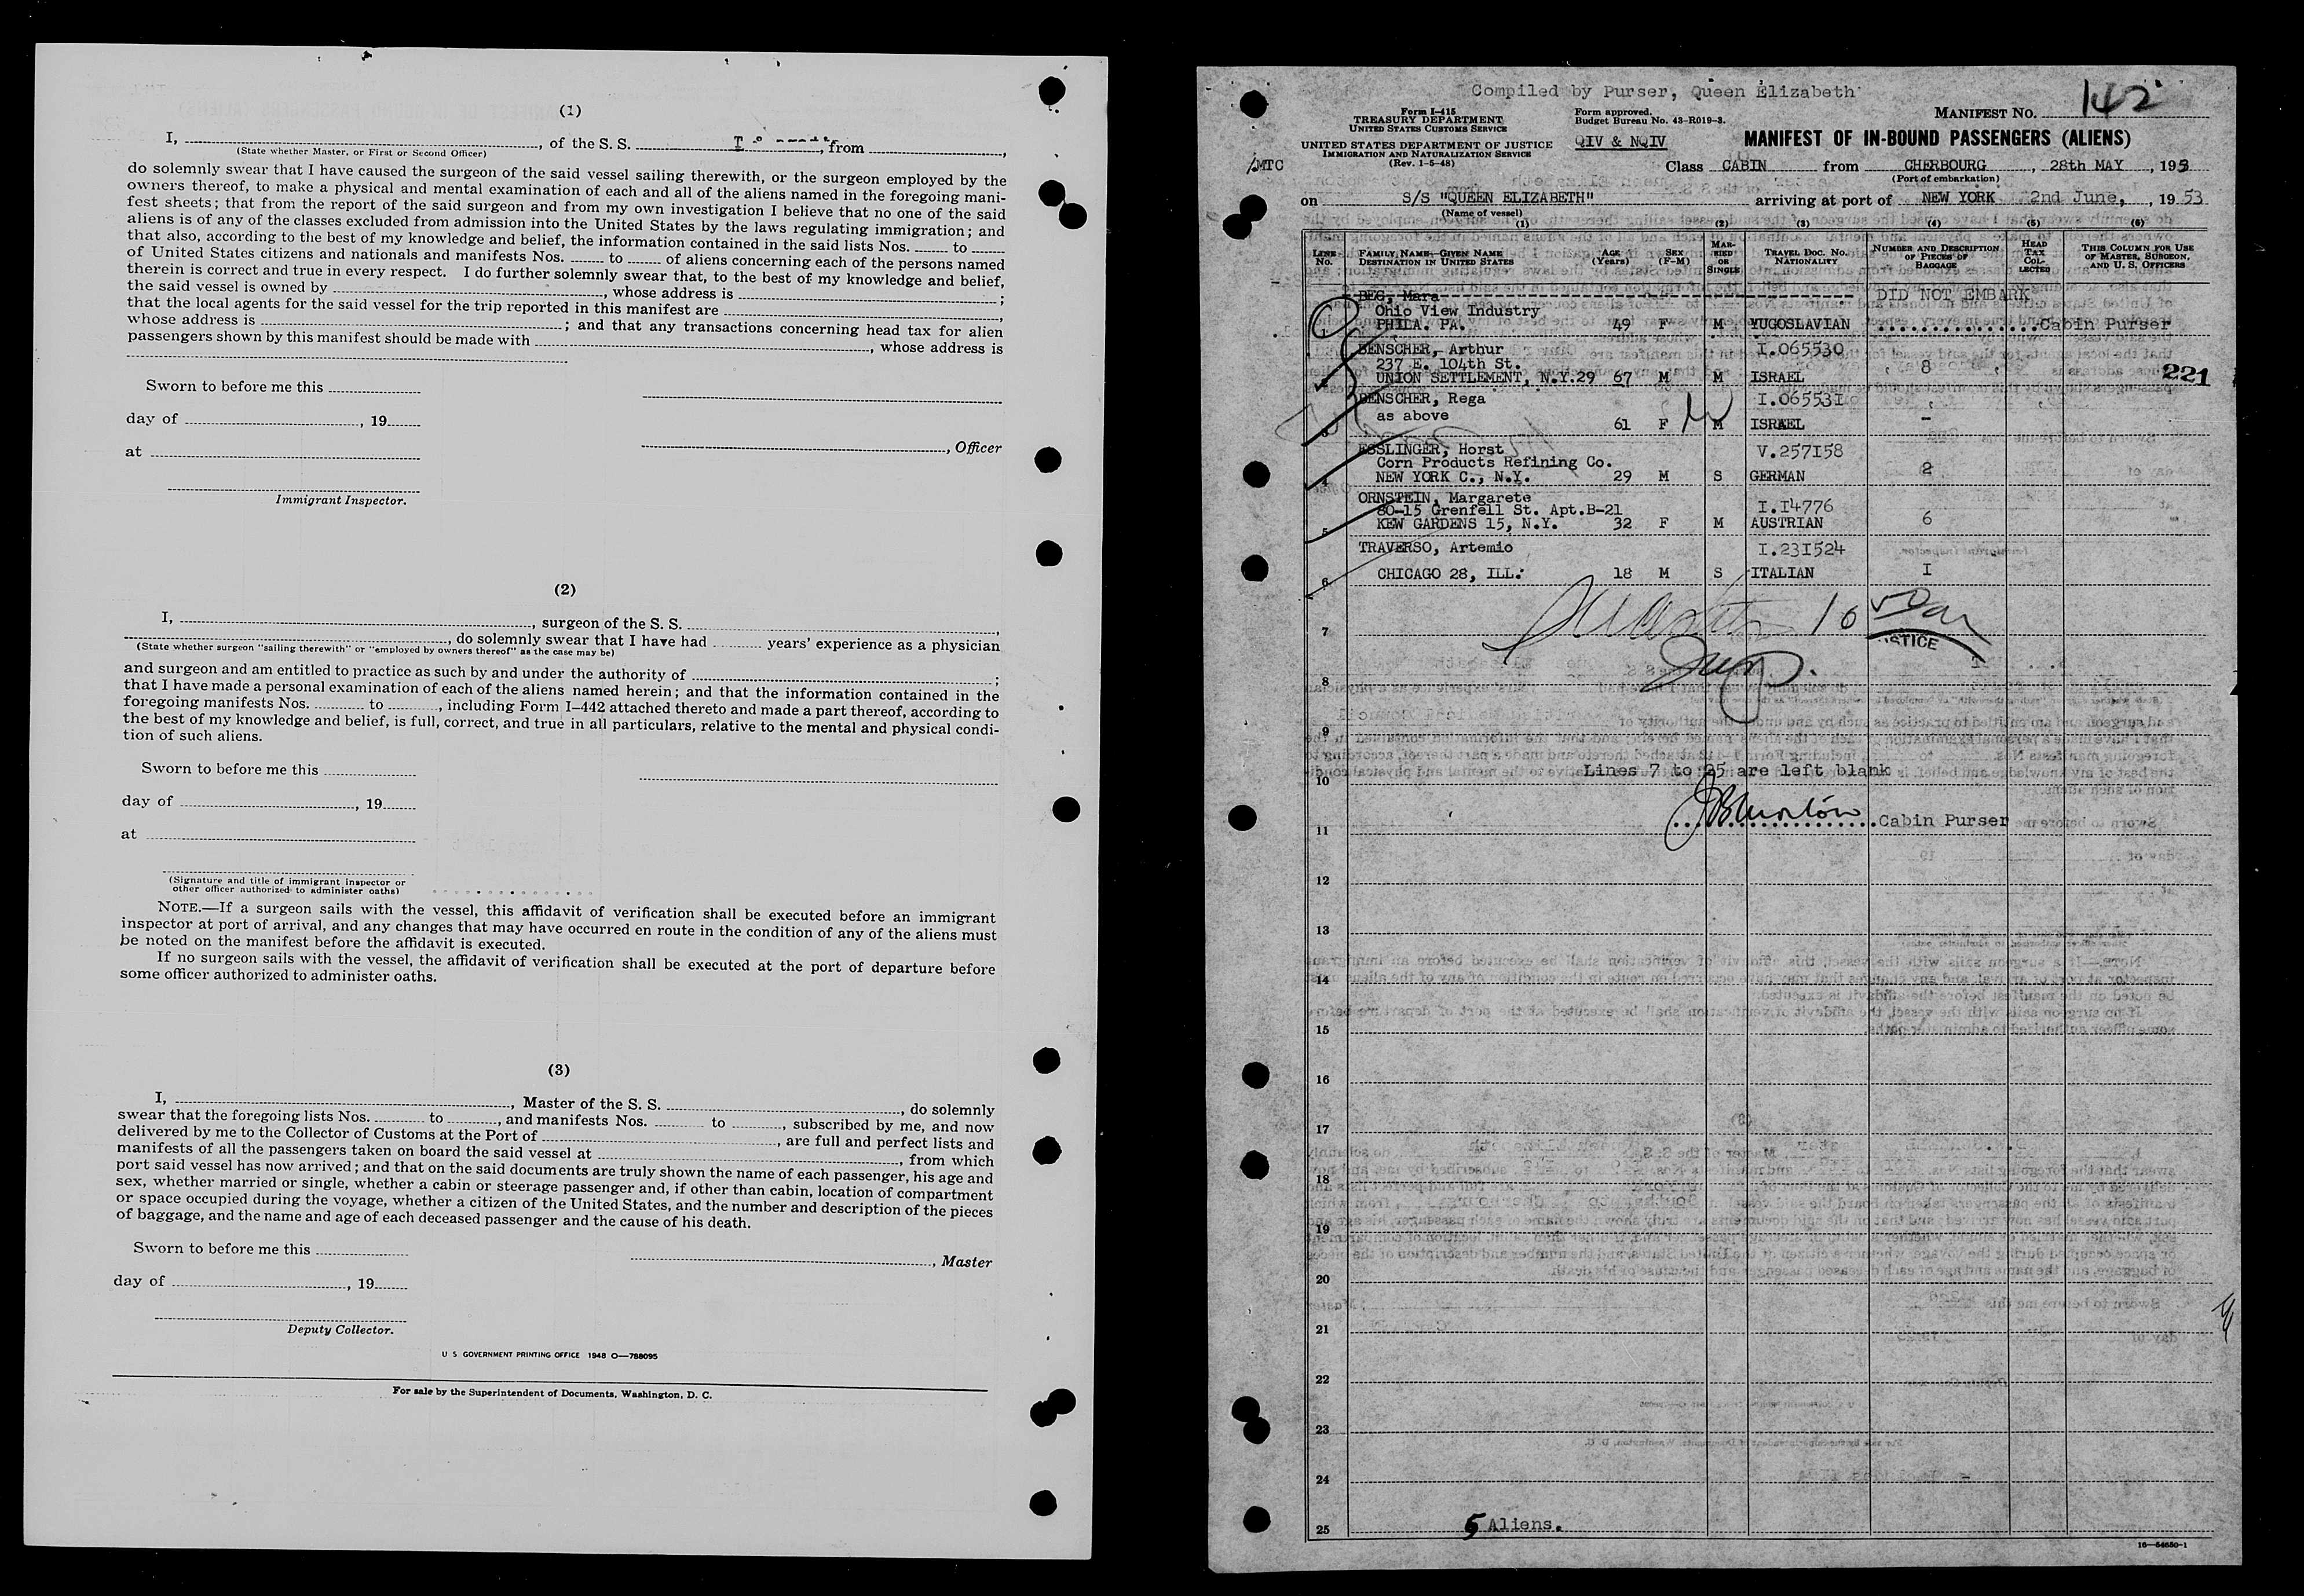 (1)
I, , of the S. S. , from ,
(State whether Master, or First or Second Officer)
do solemnly swear that I have caused the surgeon of the said vessel sailing therewith, or the surgeon employed by the
owners thereof, to make a physical and mental examination of each and all of the aliens named in the foregoing mani-
fest sheets; that from the report of the said surgeon and from my own investigation I believe that no one of the said
aliens is of any of the classes excluded from admission into the United States by the laws regulating immigration; and
that also, according to the best of my knowledge and belief, the information contained in the said lists Nos. to
of United States citizens and nationals and manifests Nos. to of aliens concerning each of the persons named
therein is correct and true in every respect. I do further solemnly swear that, to the best of my knowledge and belief,
the said vessel is owned by , whose address is ;
that the local agents for the said vessel for the trip reported in this manifest are ,
whose address is ; and that any transactions concerning head tax for alien
passengers shown by this manifest should be made with , whose address is
Sworn to before me this
day of , 19
, Officer
at
Immigrant Inspector.
(2)
I, , surgeon of the S. S. ,
, do solemnly swear that I have had years' experience as a physician
(State whether surgeon "sailing therewith" or "employed by owners thereof" as the case may be)
and surgeon and am entitled to practice as such by and under the authority of ;
that I have made a personal examination of each of the aliens named herein; and that the information contained in the
foregoing manifests Nos. to , including Form I-442 attached thereto and made a part thereof, according to
the best of my knowledge and belief, is full, correct, and true in all particulars, relative to the mental and physical condi-
tion of such aliens.
Sworn to before me this
day of , 19
at
(Signature and title of immigrant inspector or
other officer authorized to administer oaths)
NOTE.—If a surgeon sails with the vessel, this affidavit of verification shall be executed before an immigrant
inspector at port of arrival, and any changes that may have occurred en route in the condition of any of the aliens must
be noted on the manifest before the affidavit is executed.
If no surgeon sails with the vessel, the affidavit of verification shall be executed at the port of departure before
some officer authorized to administer oaths.
(3)
I, , Master of the S. S. , do solemnly
swear that the foregoing lists Nos. to , and manifests Nos. to , subscribed by me, and now
delivered by me to the Collector of Customs at the Port of , are full and perfect lists and
manifests of all the passengers taken on board the said vessel at , from which
port said vessel has now arrived; and that on the said documents are truly shown the name of each passenger, his age and
sex, whether married or single, whether a cabin or steerage passenger and, if other than cabin, location of compartment
or space occupied during the voyage, whether a citizen of the United States, and the number and description of the pieces
of baggage, and the name and age of each deceased passenger and the cause of his death.
Sworn to before me this
, Master
day of , 19
Deputy Collector.
U S GOVERNMENT PRINTING OFFICE 1948 O—788095
For sale by the Superintendent of Documents, Washington, D. C.
Compiled by Purser, Queen Elizabeth
Form I-415
TREASURY DEPARTMENT
UNITED STATES CUSTOMS SERVICE
Form approved.
Budget Bureau No. 43-R019-3.
MANIFEST NO. 142
UNITED STATES DEPARTMENT OF JUSTICE
IMMIGRATION AND NATURALIZATION SERVICE
(Rev. 1-5-48)
QIV & NQIV
MANIFEST OF IN-BOUND PASSENGERS (ALIENS)
/MTC
Class CABIN from CHERBOURG , 28th MAY , 1953
(Port of embarkation)
on S/S "QUEEN ELIZABETH" arriving at port of NEW YORK 2nd June, , 1953
(Name of vessel)
(1) (2) (3) (4) (5) (6)
LINE No. FAMILY NAME—GIVEN NAME DESTINATION IN UNITED STATES AGE (Years) SEX (F-M) MARRIED OR SINGLE TRAVEL DOC. No. NATIONALITY NUMBER AND DESCRIPTION OF PIECES OF BAGGAGE HEAD TAX COLLECTED THIS COLUMN FOR USE OF MASTER, SURGEON, AND U. S. OFFICERS
BEG, Mara DID NOT EMBARK
Ohio View Industry
1 PHILA. PA. 49 F M YUGOSLAVIAN Cabin Purser
BENSCHER, Arthur I.065530
237 E. 104th St. 8
2 UNION SETTLEMENT, N.Y.29 67 M M ISRAEL 221
BENSCHER, Rega I.065531
as above
3 61 F M ISRAEL -
ESSLINGER, Horst V.257158
Corn Products Refining Co. 2
4 NEW YORK C., N.Y. 29 M S GERMAN
ORNSTEIN, Margarete I.14776
80-15 Grenfell St. Apt.B-21 6
5 KEW GARDENS 15, N.Y. 32 F M AUSTRIAN
TRAVERSO, Artemio I.231524
6 CHICAGO 28, ILL. 18 M S ITALIAN I
7
STICE
8
9
Lines 7 to 25 are left blank
10
11 Cabin Purser
12
13
14
15
16
17
18
19
20
21
22
23
24
25 5 Aliens.
16—54650-1